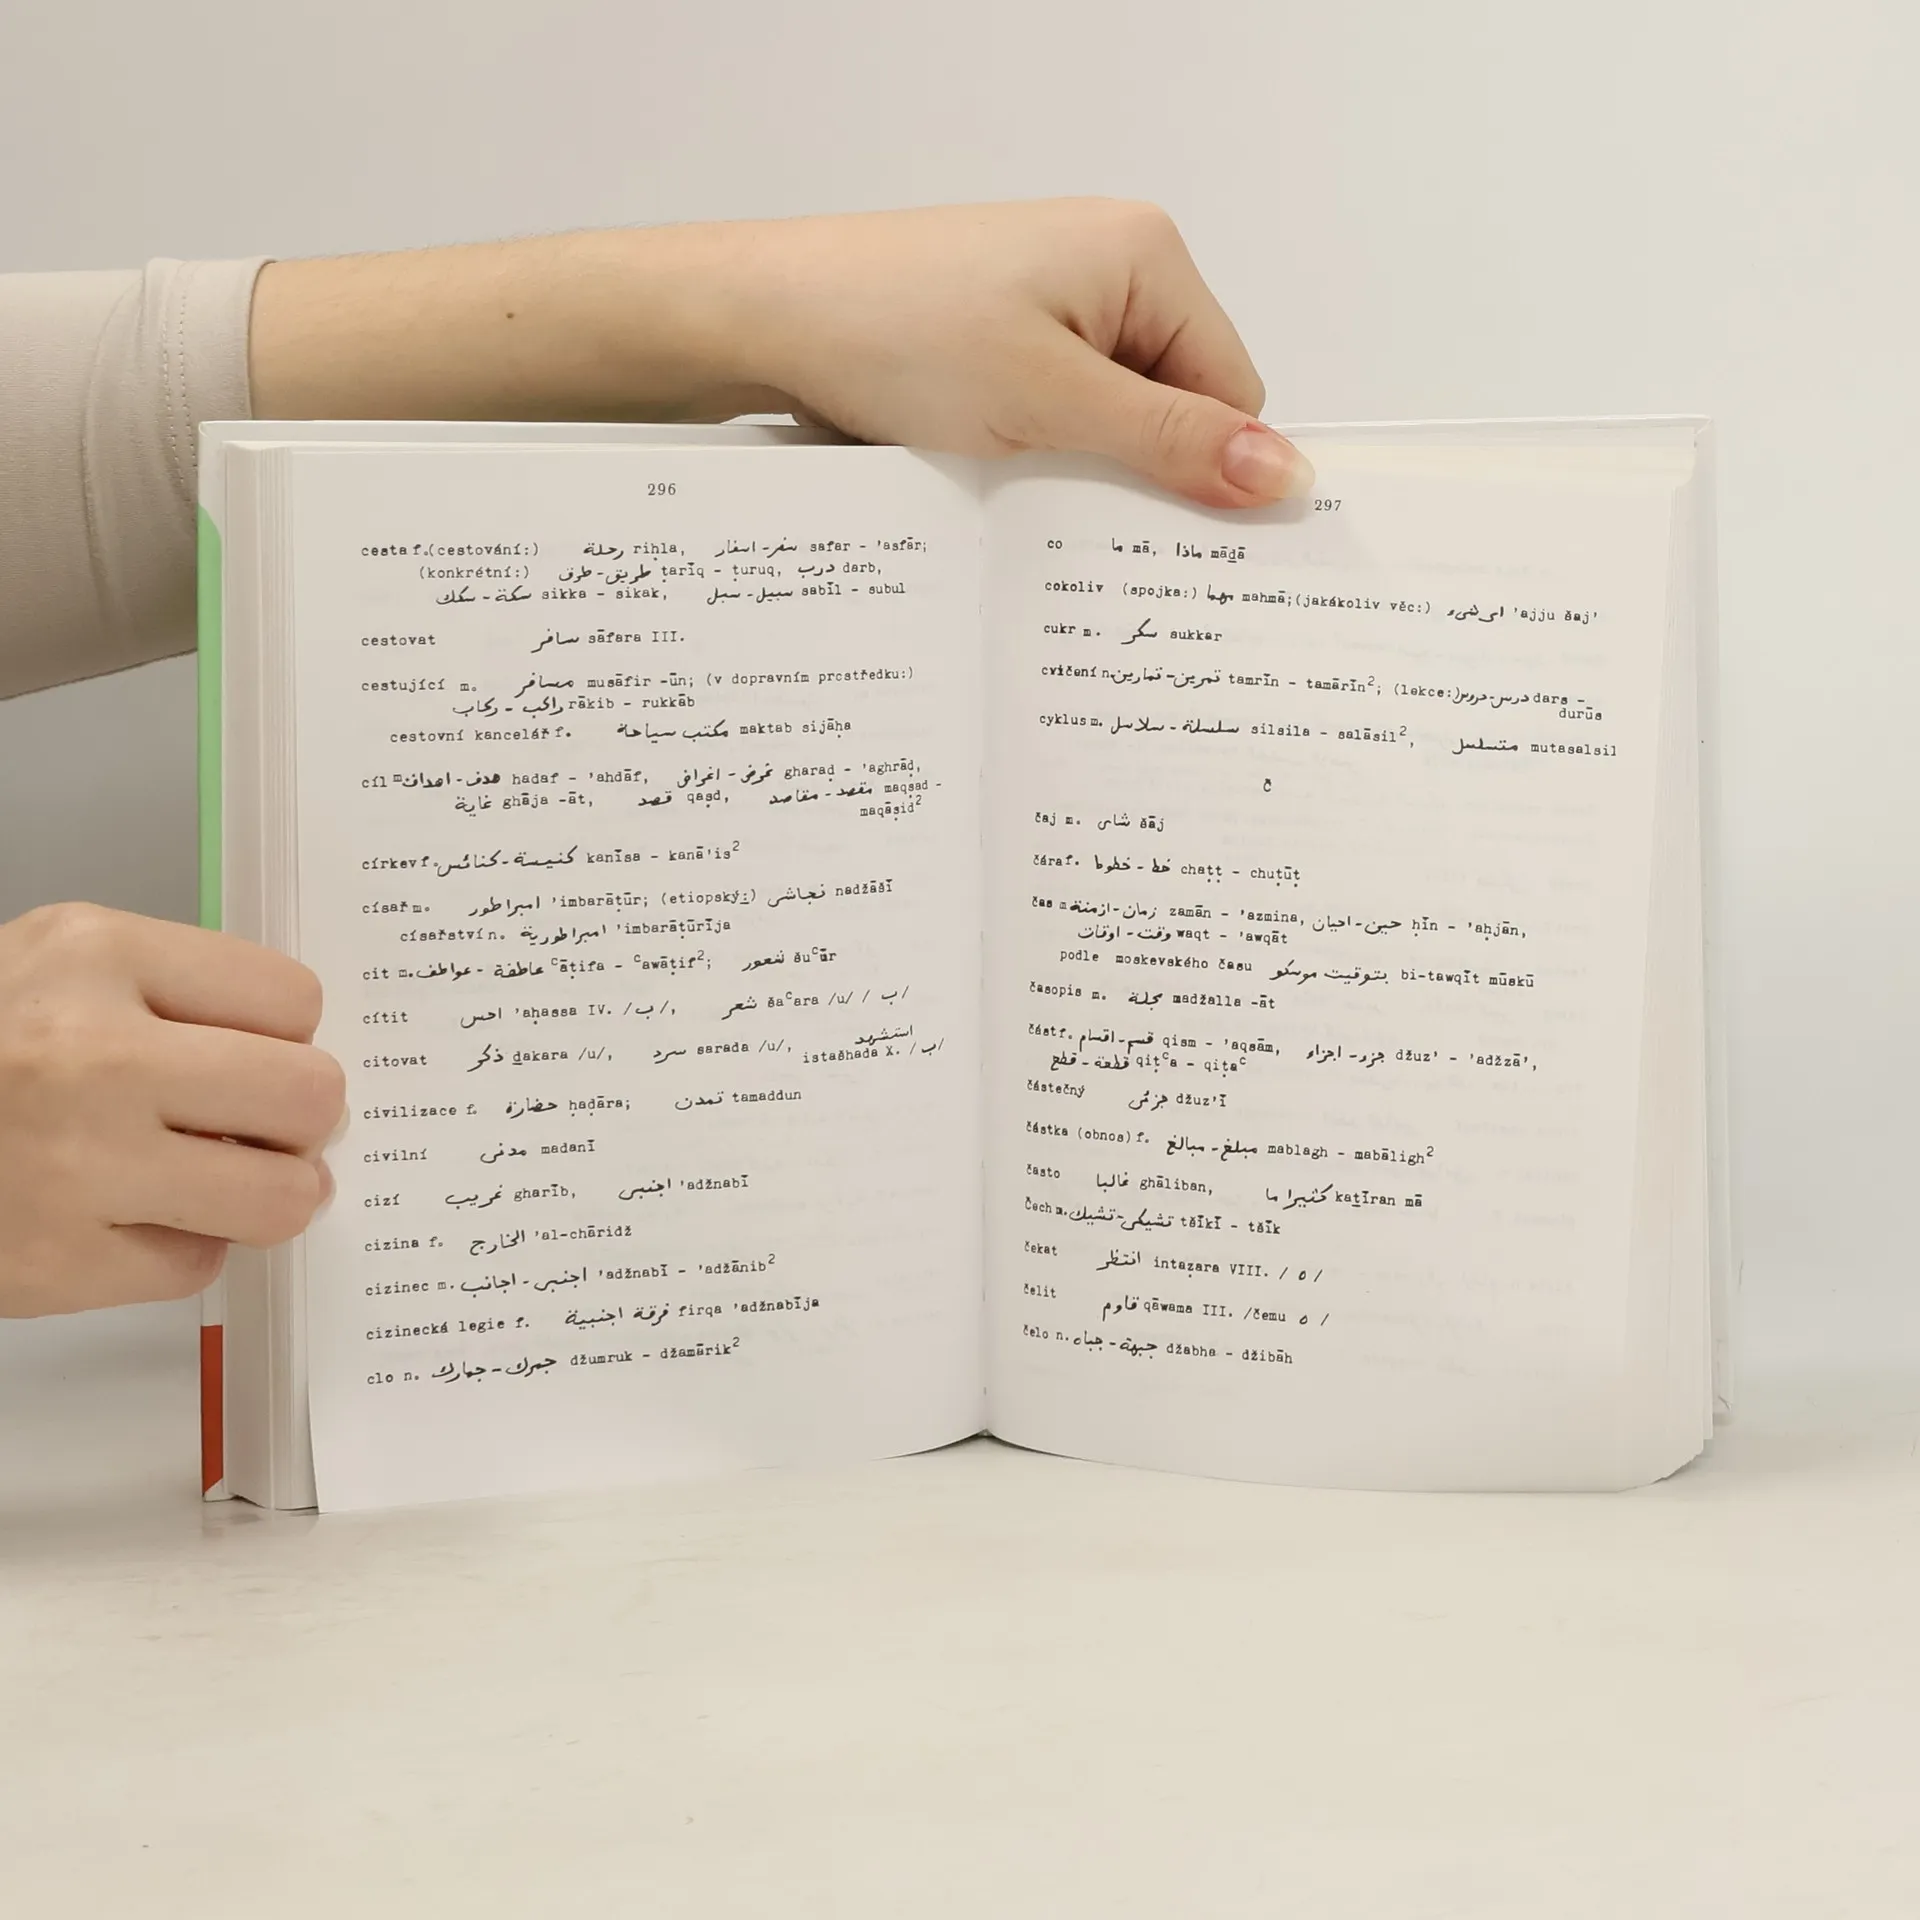 296
cesta f.(cestování:) رحلة riḥla, سفر - اسفار safar - 'asfār;
(konkrétní:) طريق - طرق ṭarīq - ṭuruq, درب darb,
سكة - سكك sikka - sikak, سبيل - سبل sabīl - subul
cestovat سافر sāfara III.
cestující m. مسافر musāfir -ūn; (v dopravním prostředku:)
راكب - ركاب rākib - rukkāb
cestovní kancelář f. مكتب سياحة maktab sijāḥa
cíl m هدف - اهداف hadaf - 'ahdāf, غرض - اغراض gharaḍ - 'aghrāḍ,
غاية ghāja -āt, قصد qaṣd, مقصد - مقاصد maqṣad -
maqāṣid²
církev f. كنيسة - كنائس kanīsa - kanā'is²
císař m. امبراطور 'imbarāṭūr; (etiopský:) نجاشى nadžāšī
císařství n. امبراطورية 'imbarāṭūrīja
cit m. عاطفة - عواطف ᶜāṭifa - ᶜawāṭif²; شعور šuᶜūr
cítit احس 'aḥassa IV. /ب/, شعر šaᶜara /u/ /ب/
citovat ذكر ḏakara /u/, سرد sarada /u/, استشهد
istašhada X. /ب/
civilizace f. حضارة ḥaḍāra; تمدن tamaddun
civilní مدنى madanī
cizí غريب gharīb, اجنبى 'adžnabī
cizina f. الخارج 'al-chāridž
cizinec m. اجنبى - اجانب 'adžnabī - 'adžānib²
cizinecká legie f. فرقة اجنبية firqa 'adžnabīja
clo n. جمرك - جمارك džumruk - džamārik²
297
co ما mā, ماذا māḏā
cokoliv (spojka:) مهما mahmā;(jakákoliv věc:) اى شىء 'ajju šaj'
cukr m. سكر sukkar
cvičení n. تمرين - تمارين tamrīn - tamārīn²; (lekce:) درس - دروس dars -
durūs
cyklus m. سلسلة - سلاسل silsila - salāsil², متسلسل mutasalsil
Č
čaj m. شاى šāj
čára f. خط - خطوط chaṭṭ - chuṭūṭ
čas m زمان - ازمنة zamān - 'azmina, حين - احيان ḥīn - 'aḥjān,
وقت - اوقات waqt - 'awqāt
podle moskevského času بتوقيت موسكو bi-tawqīt mūskū
časopis m. مجلة madžalla -āt
část f. قسم - اقسام qism - 'aqsām, جزء - اجزاء džuz' - 'adžzā',
قطعة - قطع qiṭᶜa - qiṭaᶜ
částečný جزئى džuz'ī
částka (obnos) f. مبلغ - مبالغ mablagh - mabāligh²
často غالبا ghāliban, كثيرا ما kaṯīran mā
Čech m. تشيكى - تشيك tšīkī - tšīk
čekat انتظر intaẓara VIII. / ه /
čelit قاوم qāwama III. /čemu ه /
čelo n. جبهة - جباه džabha - džibāh